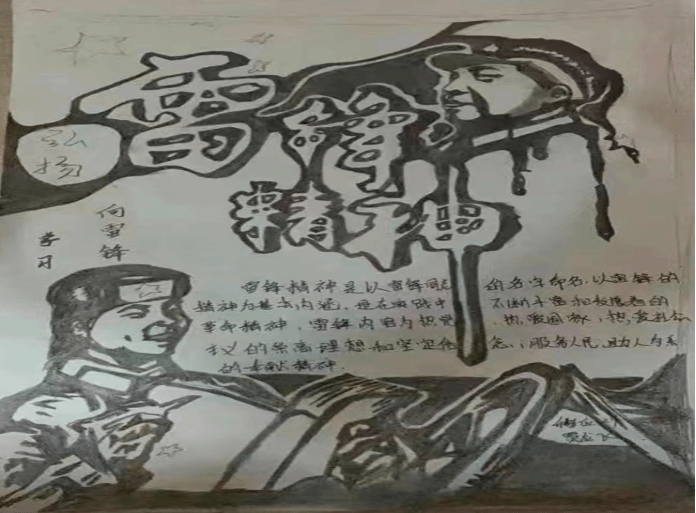 弘扬
雷锋
精神
向雷锋
学习
雷锋精神是以雷锋同志的名字命名,以雷锋的
精神为基本内涵,在实践中不断丰富和发展着的
革命精神,雷锋内涵为热爱党,热爱国家,热爱社会
义的崇高理想和坚定信念;服务人民,助人为乐
的奉献精神.